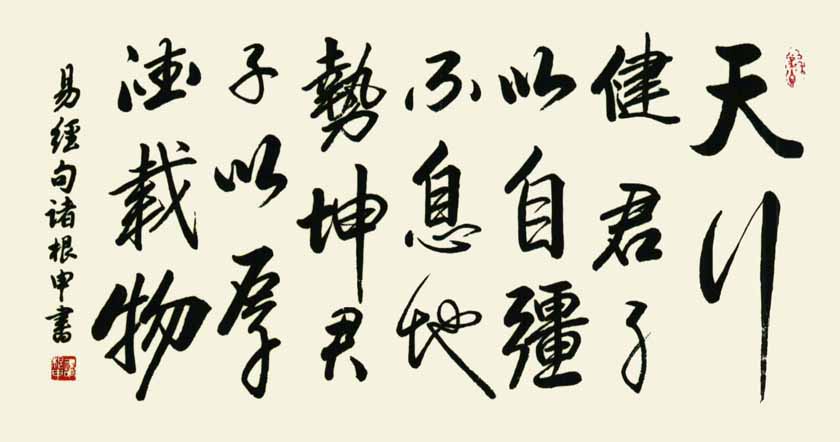 天行
健君子
以自彊
不息地
勢坤君
子以厚
德載物
易經句諸根申書